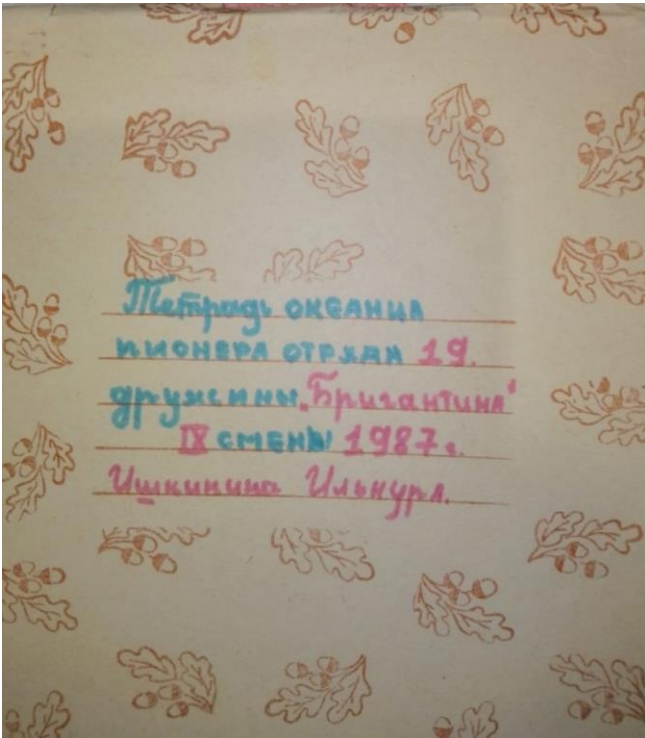 Тетрадь океанца
пионера отряда 19.
дружины „Бригантина"
IX смены 1987г.
Ишкинина Ильнура.